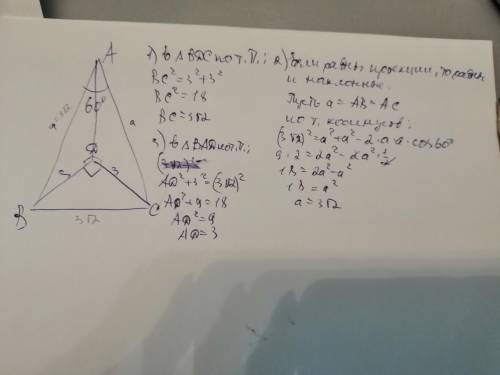 A
60°
a=3√2
a
D
3
3
B
C
3√2
1) в △ BDC по т. П.:
BC²=3²+3²
BC²=18
BC=3√2
3) в △ BAD по т. П.:
AD²+3²=(3√2)²
AD²+9=18
AD²=9
AD=3
2) Если равны проекции, то равны
и наклонные.
Пусть a = AB = AC
по т. косинусов:
(3√2)²=a²+a²-2·a·a·cos60°
9·2=2a²-2a²·½
18=2a²-a²
18=a²
a=3√2